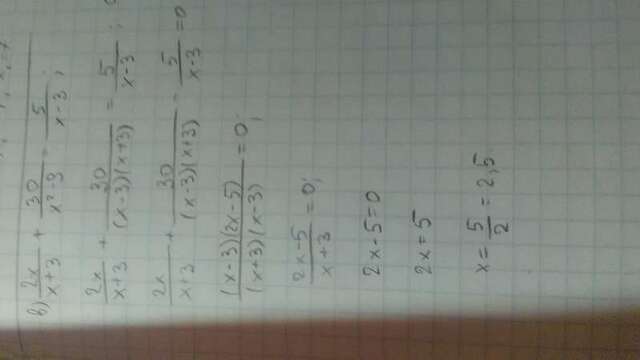 в) 2x/(x+3) + 30/(x²-9) = 5/(x-3);
2x/(x+3) + 30/((x-3)(x+3)) = 5/(x-3);
2x/(x+3) + 30/((x-3)(x+3)) - 5/(x-3) = 0
((x-3)(2x-5))/((x+3)(x-3)) = 0;
(2x-5)/(x+3) = 0;
2x-5=0
2x=5
x = 5/2 = 2,5